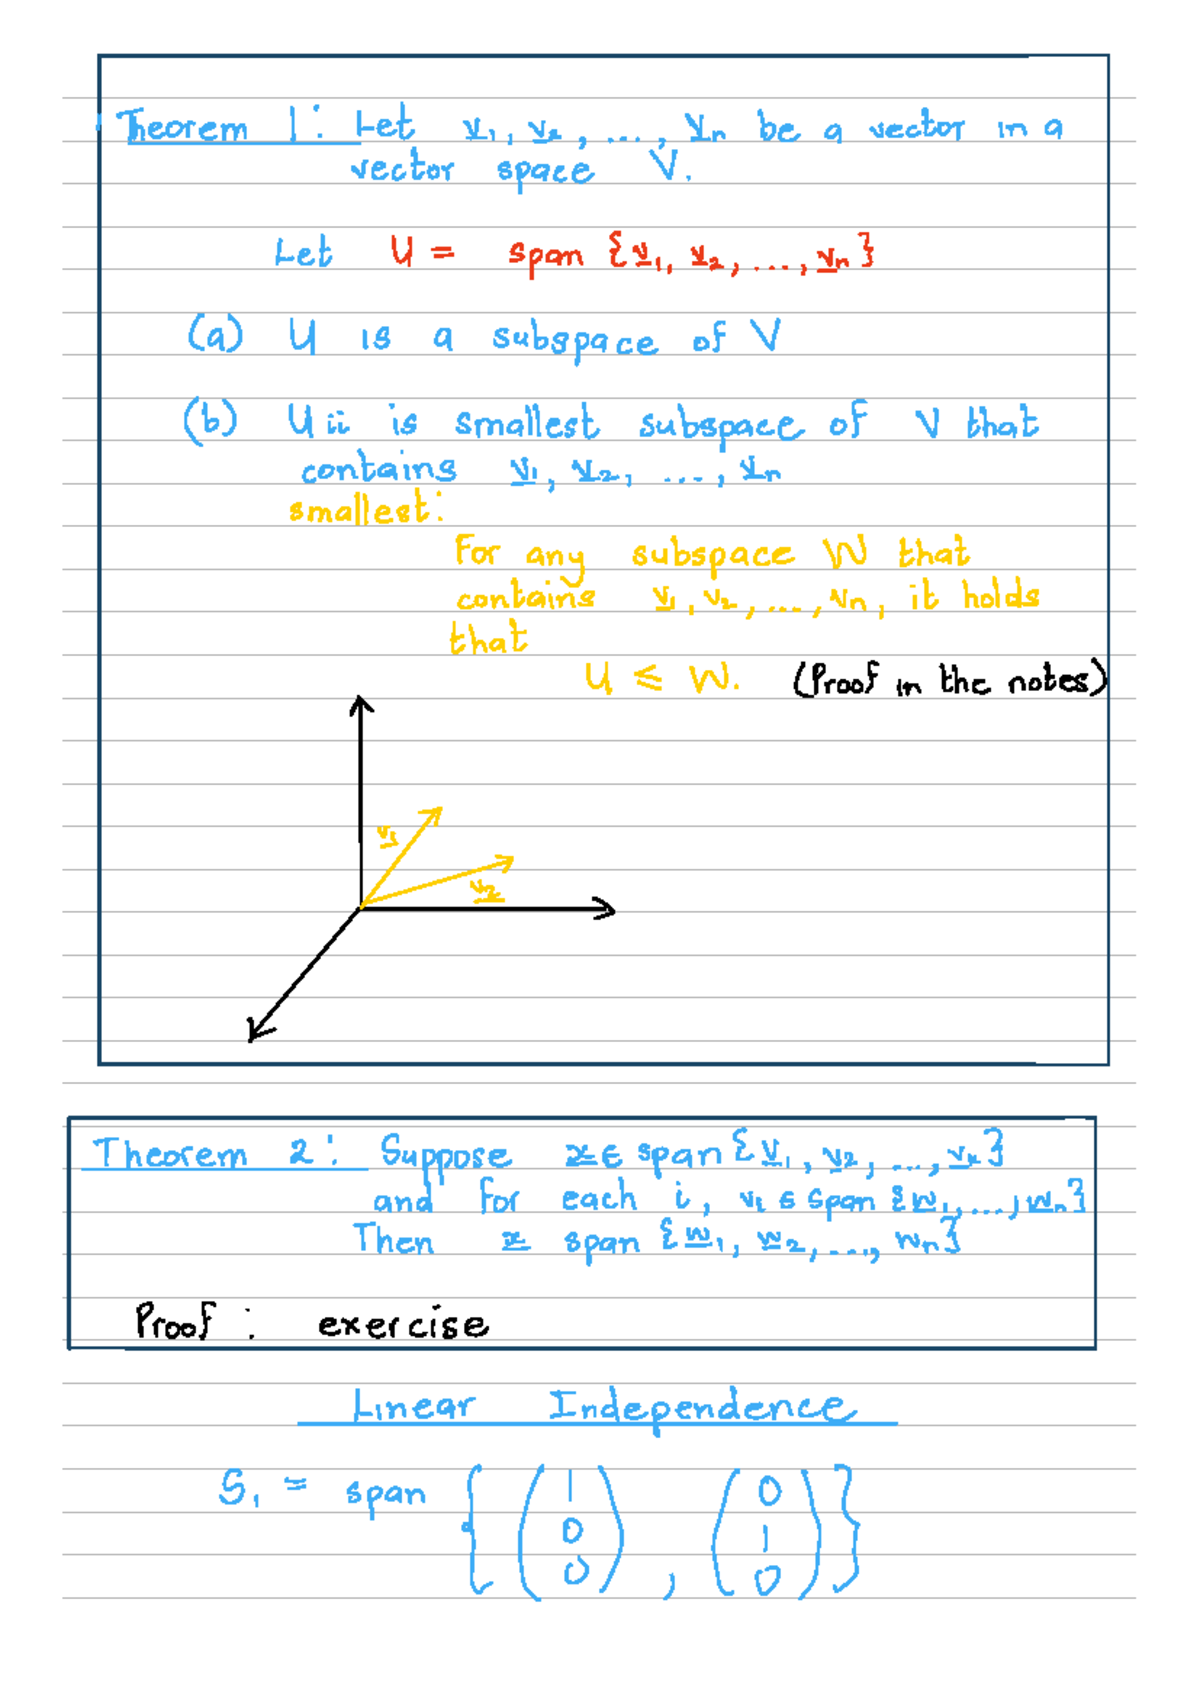 Theorem 1: Let v1, v2, ..., vn be a vector in a
vector space V.
Let U = span {v1, v2, ..., vn}
(a) U is a subspace of V
(b) U ii is smallest subspace of V that
contains v1, v2, ..., vn
smallest:
For any subspace W that
contains v1, v2, ..., vn, it holds
that
U ≤ W. (Proof in the notes)
v1
v2
Theorem 2: Suppose x ∈ span {v1, v2, ..., vk}
and for each i, vi ∈ span {w1, ..., wn}
Then x span {w1, w2, ..., wn}
Proof : exercise
Linear Independence
S1 = span { ( 1 0 0 ) , ( 0 1 0 ) }